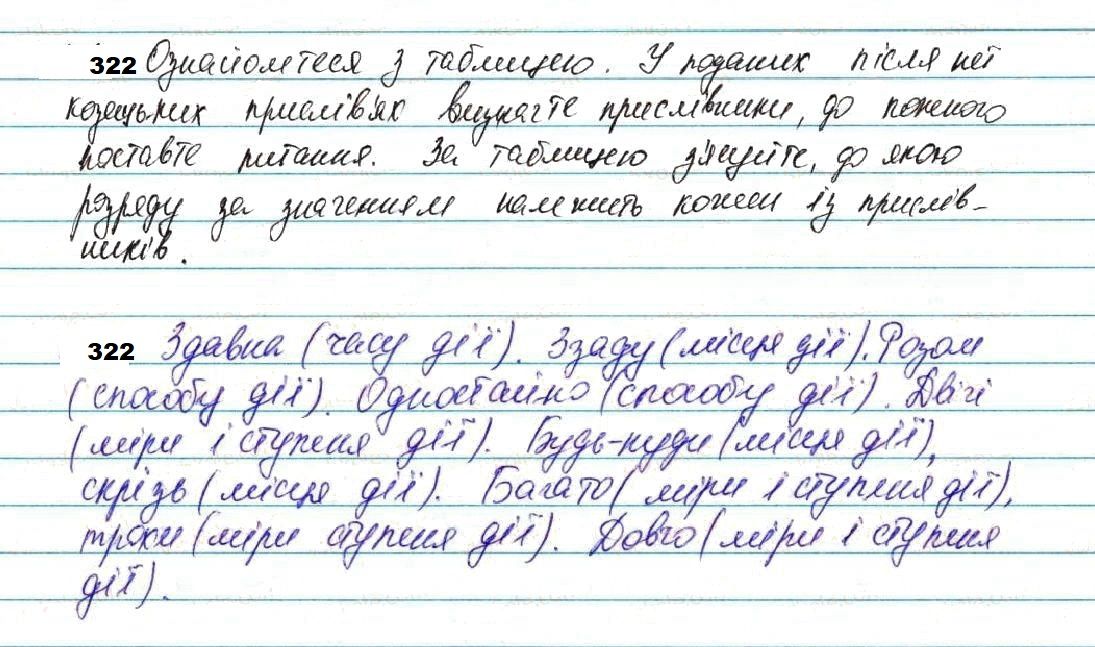 322 Ознайомтеся з таблицею. У поданих після неї
козацьких прислів'ях визначте прислівники, до кожного
поставте питання. За таблицею з'ясуйте, до якого
розряду за значенням належить кожен із прислів-
ників.
322 Здавна (часу дії). Ззаду (місця дії). Разом
(способу дії). Одностайно (способу дії). Двічі
(міри і ступеня дії). Будь-куди (місця дії),
скрізь (місця дії). Багато (міри і ступеня дії),
трохи (міри ступеня дії). Довго (міри і ступеня
дії).